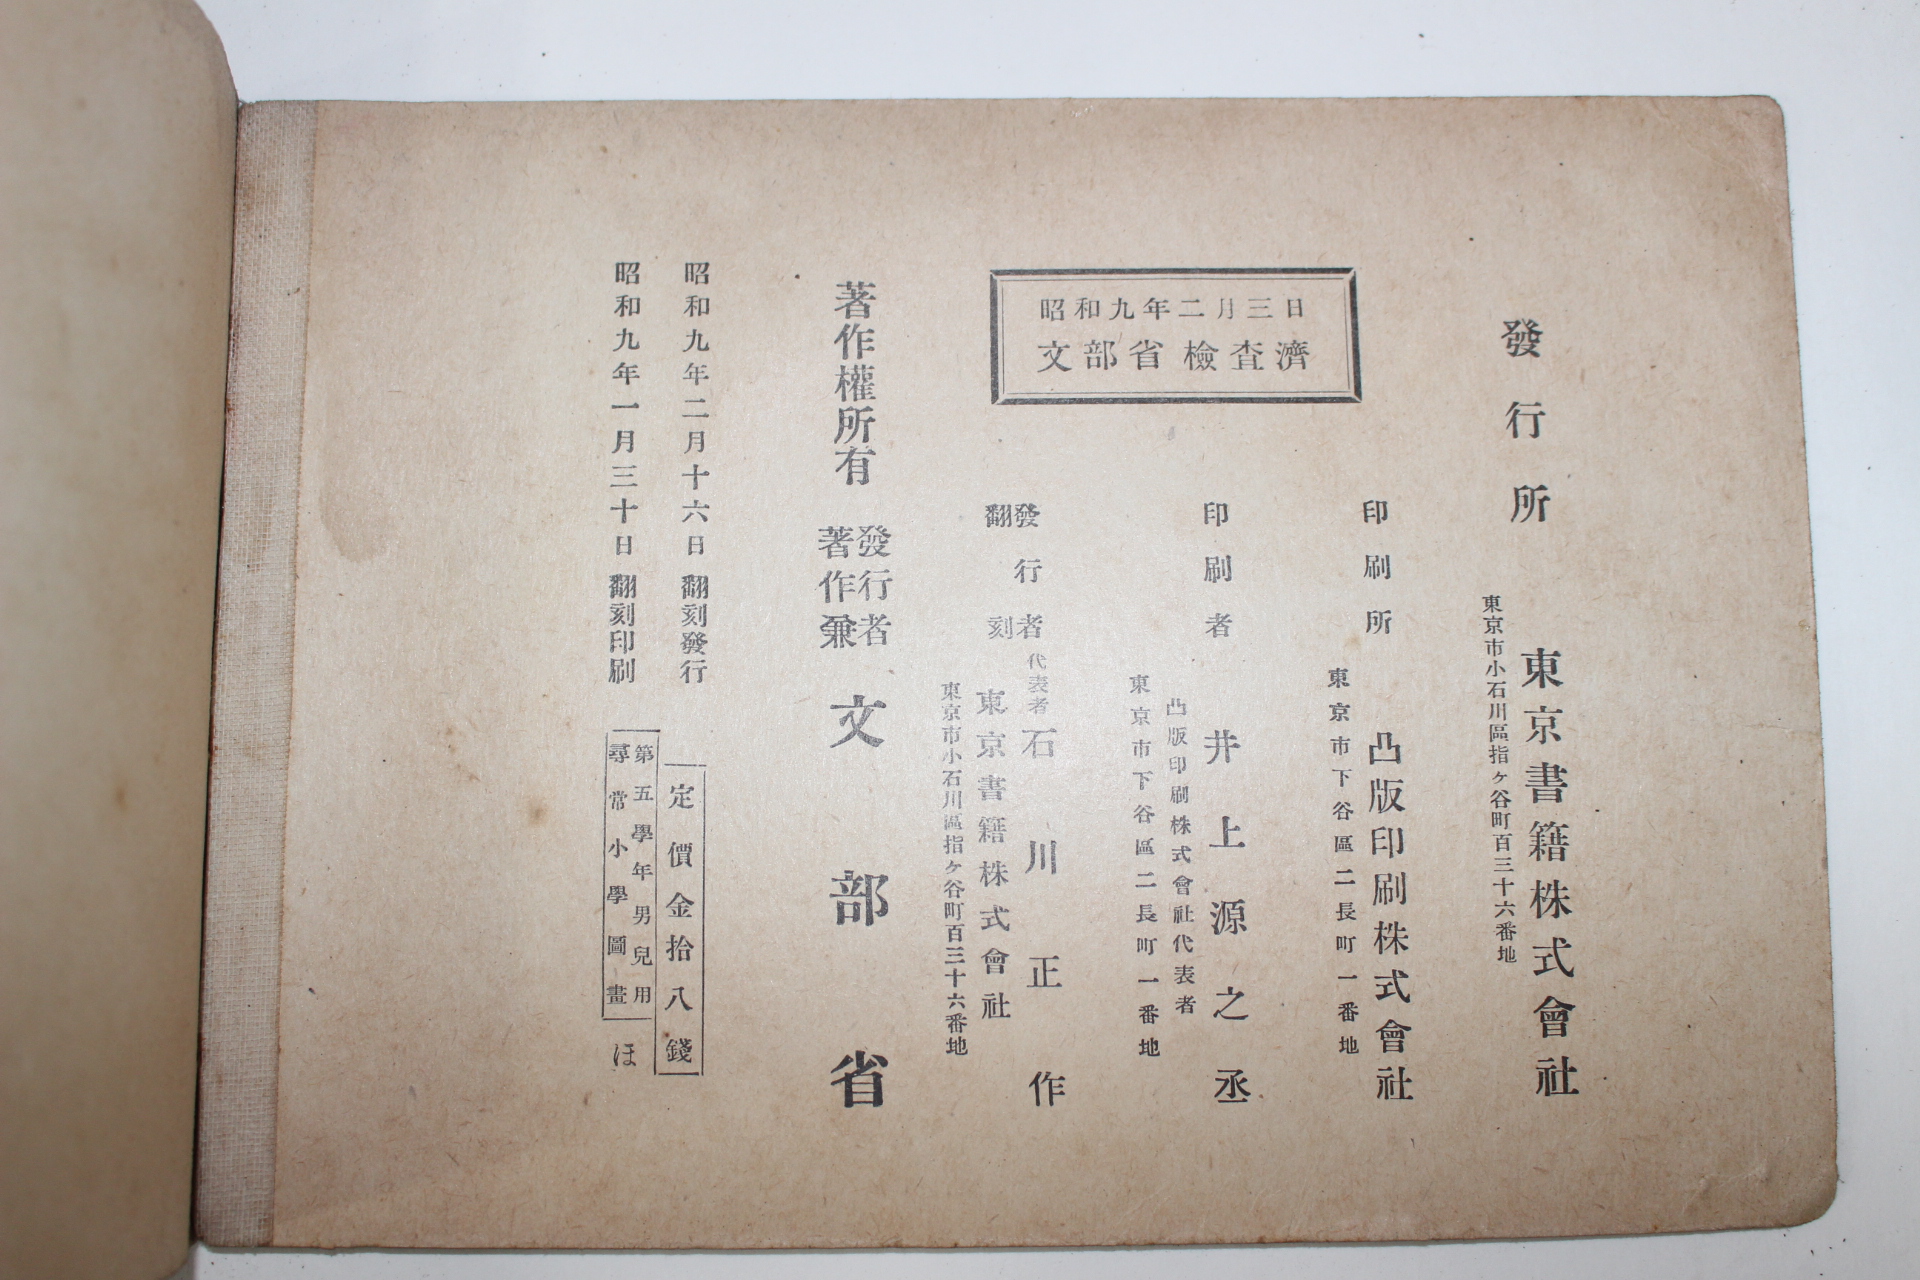 昭和九年一月三十日 翻刻印刷
昭和九年二月十六日 翻刻發行
尋常小學圖畫
第五學年男兒用
ほ
定價金拾八錢
著作權所有
著作兼
發行者
文部省
昭和九年二月三日
文部省檢査濟
翻刻
發行者
東京市小石川區指ヶ谷町百三十六番地
東京書籍株式會社
代表者 石川正作
印刷者
東京市下谷區二長町一番地
凸版印刷株式會社代表者
井上源之丞
印刷所
東京市下谷區二長町一番地
凸版印刷株式會社
發行所
東京市小石川區指ヶ谷町百三十六番地
東京書籍株式會社